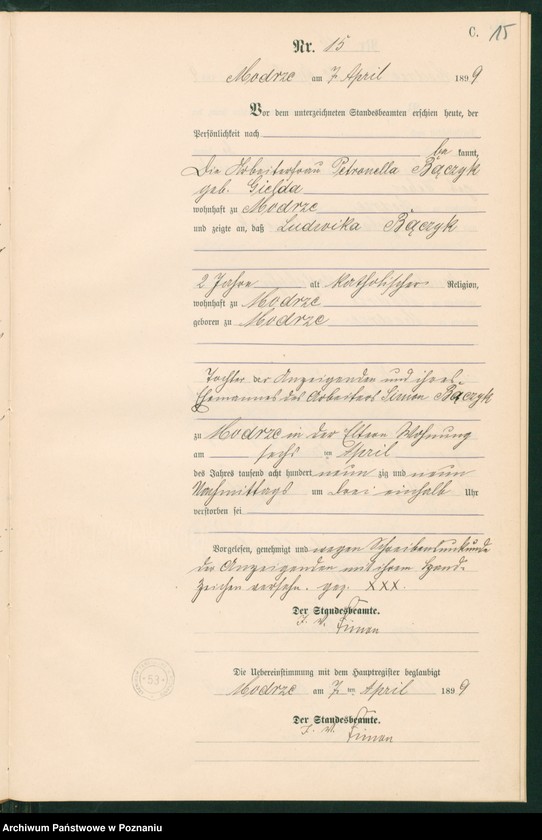 C. 15
Nr. 15
Modrze am 7. April 1899
Vor dem unterzeichneten Standesbeamten erschien heute, der
Persönlichkeit nach
be kannt,
Die Arbeiterfrau Petronella Bączyk
geb. Gielda
wohnhaft zu Modrze
und zeigte an, daß Ludovika Bączyk
2 Jahre alt katholischer Religion,
wohnhaft zu Modrze
geboren zu Modrze
Tochter der Anzeigenden und ihres
Ehemannes des Arbeiters Simon Bączyk
zu Modrze in der Eltern Wohnung
am sechs ten April
des Jahres tausend acht hundert neun zig und neun
Nachmittags um drei einhalb Uhr
verstorben sei
Vorgelesen, genehmigt und wegen Schreibensunkunde
der Anzeigenden mit ihrem Hand-
zeichen versehn. gez. XXX.
Der Standesbeamte.
I. V.
Simon
Die Uebereinstimmung mit dem Hauptregister beglaubigt
Modrze am 7. ten April 1899
Der Standesbeamte.
I. V.
Simon
53
Archiwum Państwowe w Poznaniu